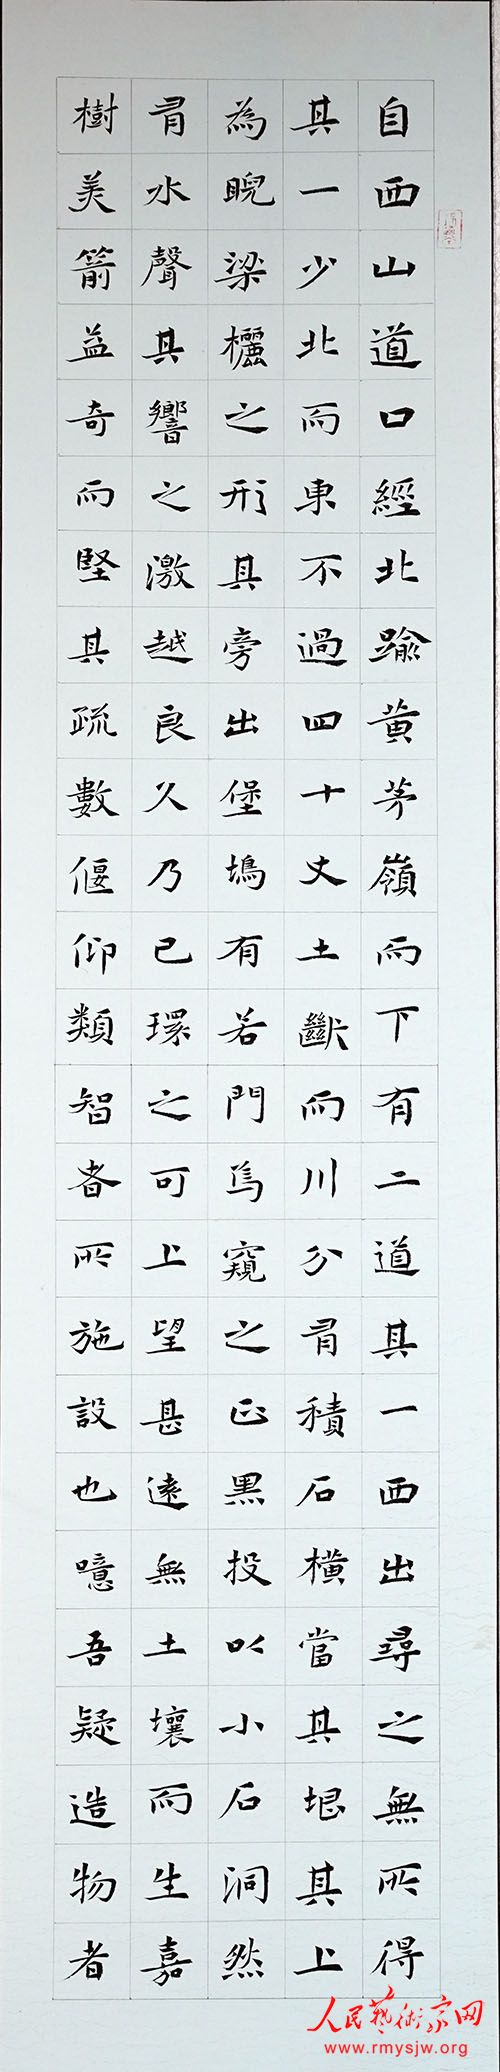 自西山道口經北踰黃茅嶺而下有二道其一西出尋之無所得
其一少北而東不過四十丈土斷而川分有積石橫當其垠其上
為睨梁欐之形其旁出堡塢有若門焉窺之正黑投以小石洞然
有水聲其響之激越良久乃已環之可上望甚遠無土壤而生嘉
樹美箭益奇而堅其疏數偃仰類智者所施設也噫吾疑造物者
人民藝術家网
www.rmysjw.org